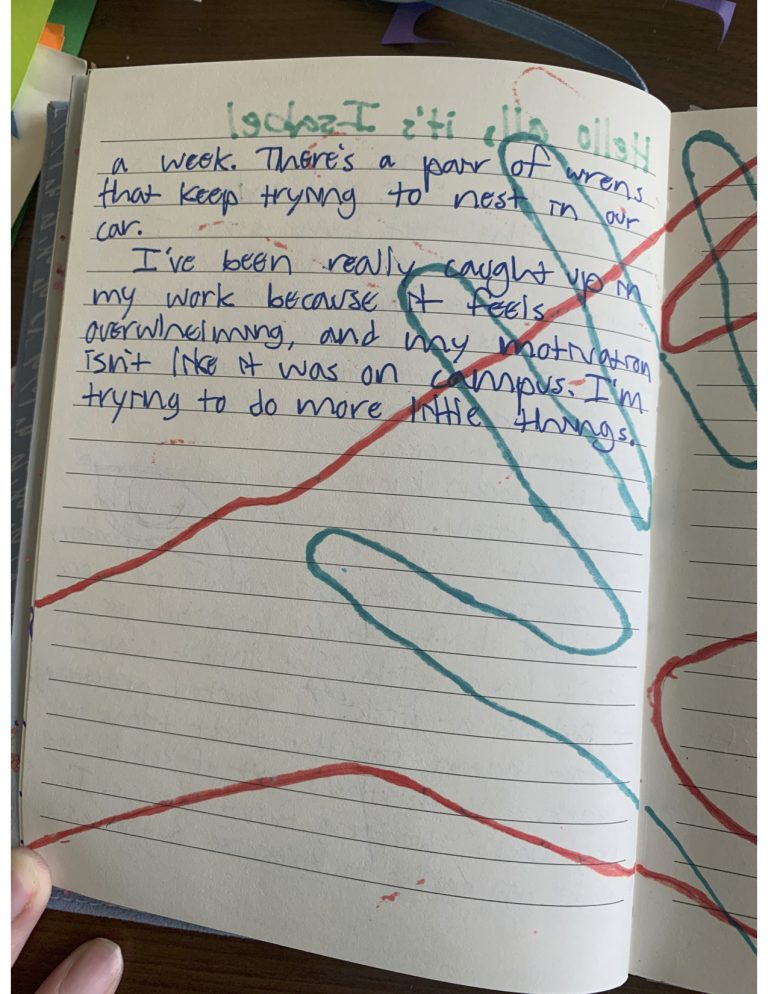 Hello all, it's Isabel
a week. There's a pair of wrens
that keep trying to nest in our
car.
I've been really caught up in
my work because it feels
overwhelming, and my motivation
isn't like it was on campus. I'm
trying to do more little things.